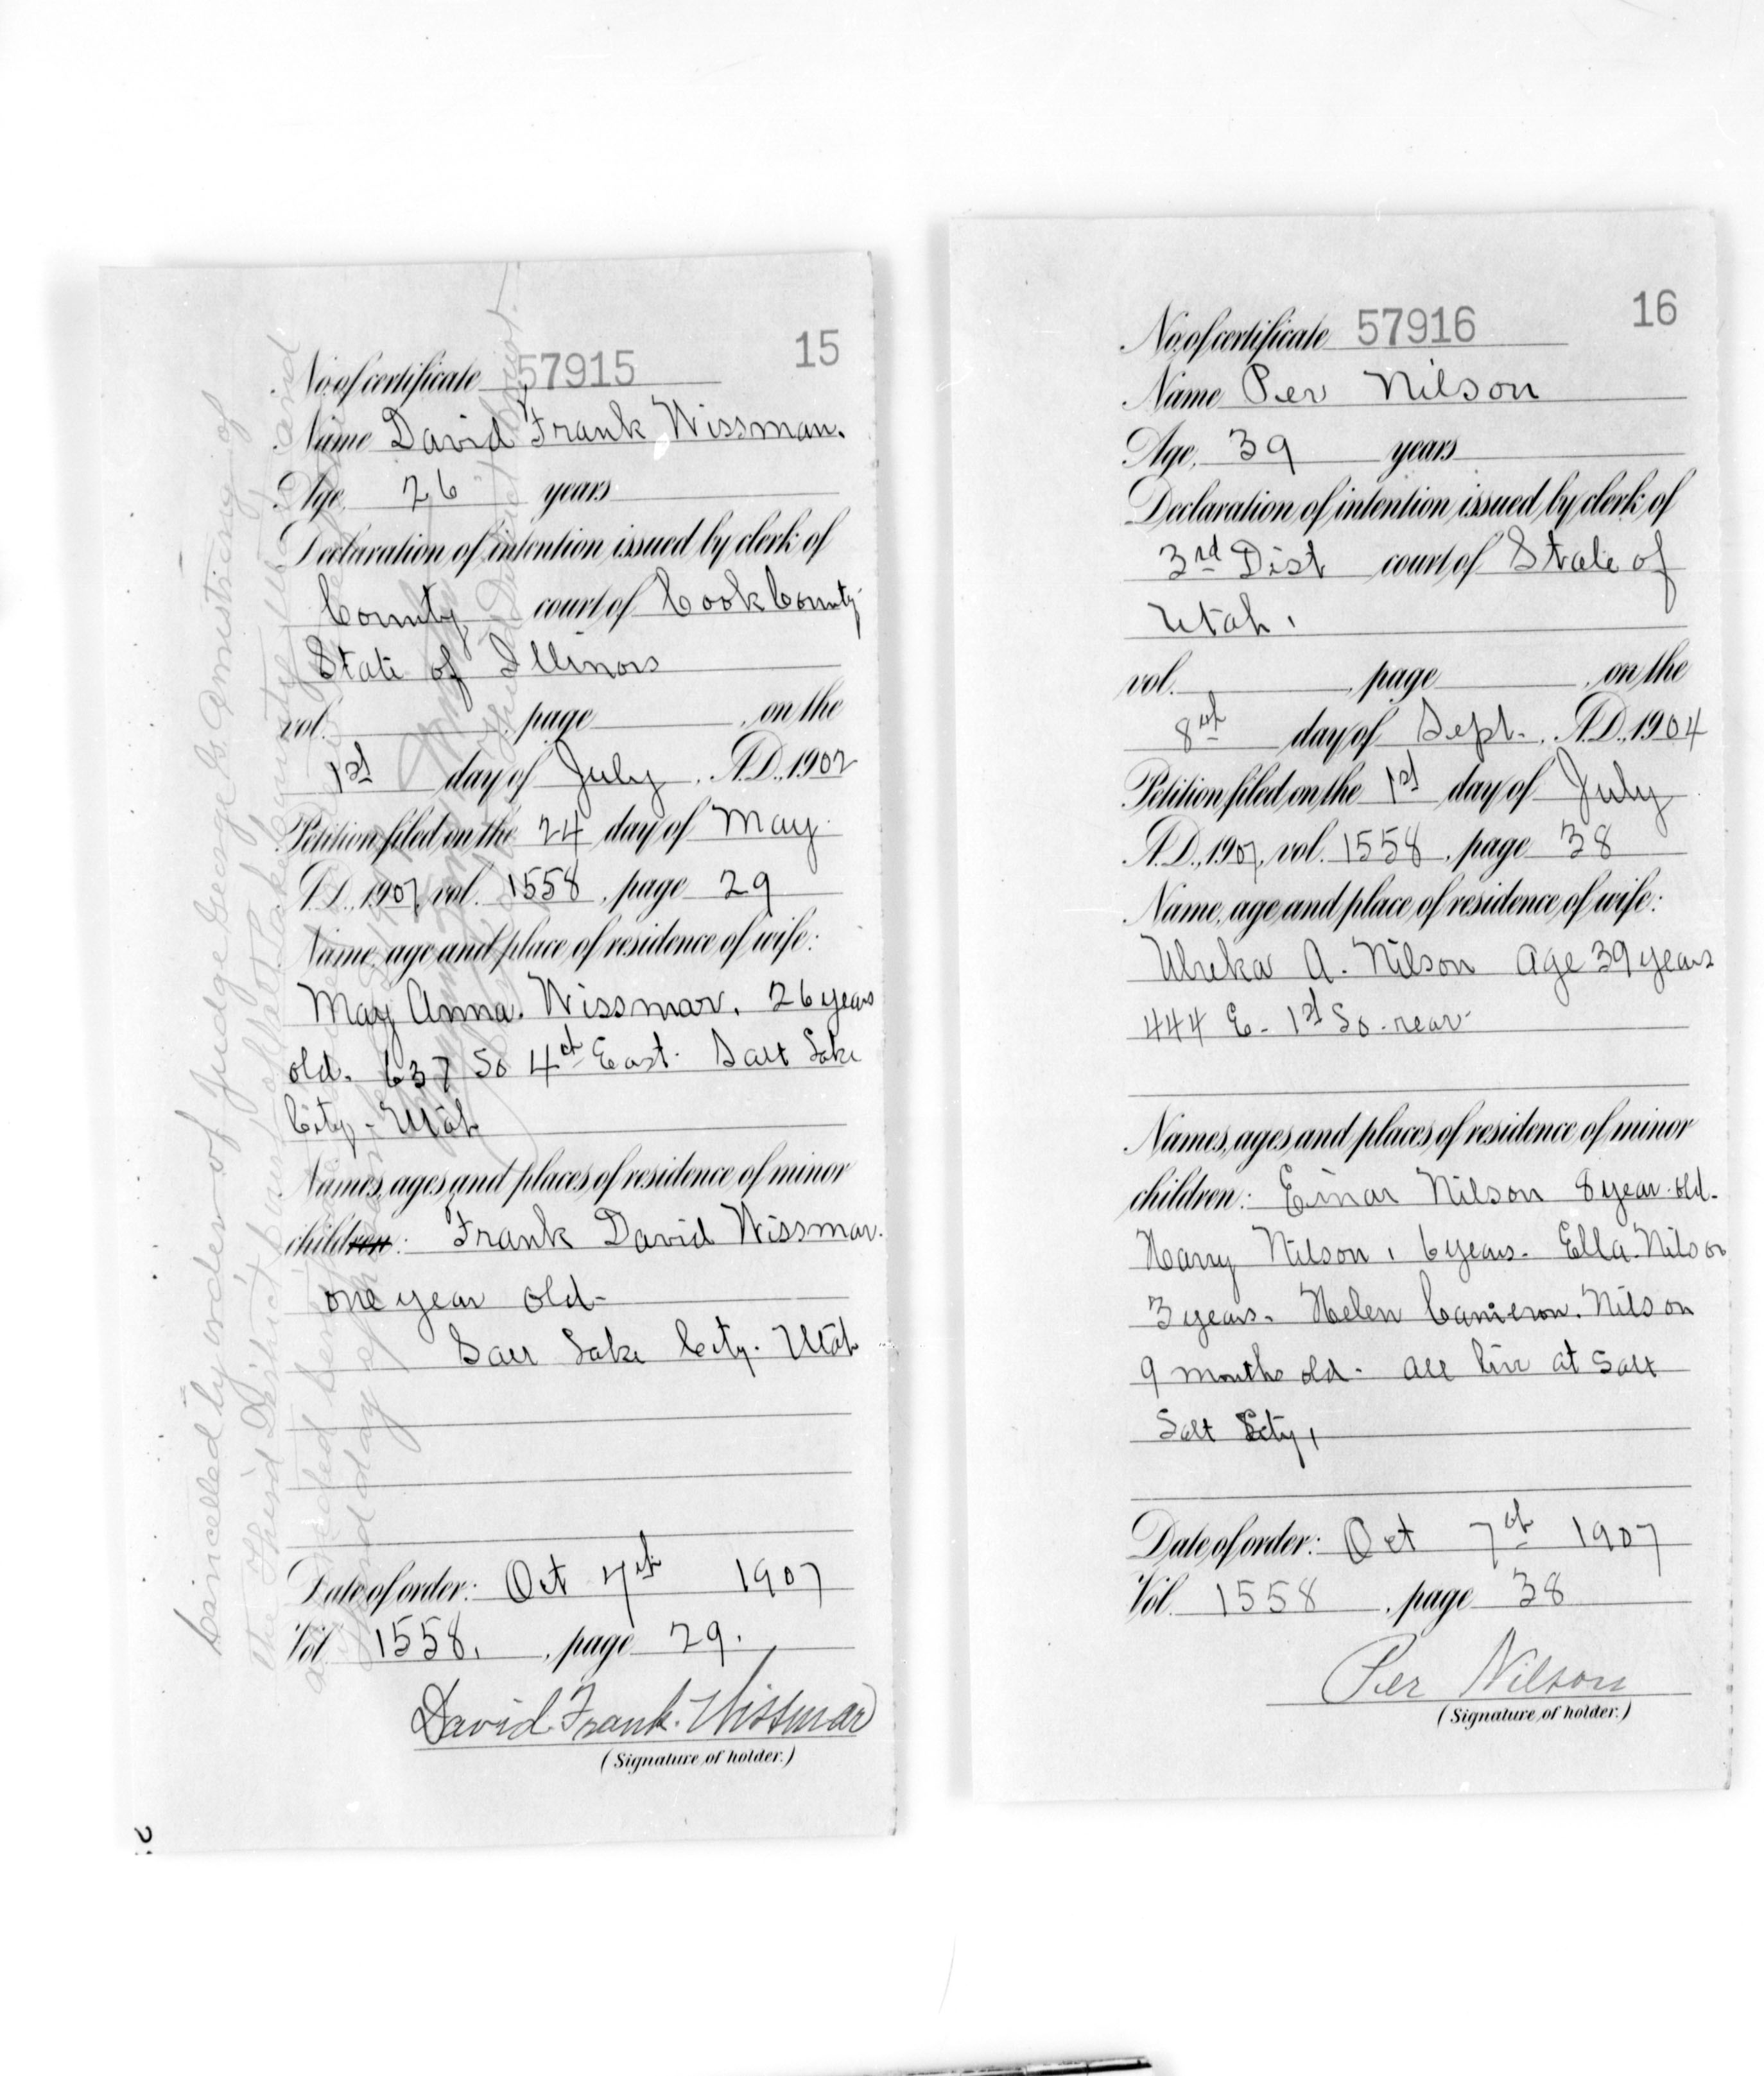 15
No. of certificate 57915
Name David Frank Wissman.
Age, 26 years
Declaration of intention issued by clerk of
County court of Cook County
State of Illinois
vol. , page , on the
1st day of July, A.D., 1902
Petition filed on the 24 day of May
A.D., 1907, vol. 1558, page 29
Name, age and place of residence of wife:
May Anna. Wissmar. 26 years
old. 637 So 4th East. Salt Lake
City - Utah
Names, ages and places of residence of minor
children: Frank David Wissmar.
one year old-
Salt Lake City. Utah
Date of order: Oct 7th 1907
Vol. 1558, page 29.
David Frank. Wissmar
(Signature of holder.)
Cancelled by order of Judge George G. Armstrong of
the Third District Court of Salt Lake County, Utah and
16
No. of certificate 57916
Name Per Nilson
Age, 39 years
Declaration of intention issued by clerk of
3rd Dist court of State of
Utah.
vol. , page , on the
8th day of Sept., A.D., 1904
Petition filed on the 1st day of July
A.D., 1907, vol. 1558, page 38
Name, age and place of residence of wife:
Ulreka A. Nilson Age 39 years
444 E. 1st So. rear
Names, ages and places of residence of minor
children: Einar Nilson 8 year old.
Harry Nilson, 6 years. Ella Nilson
3 years. Helen Cameron. Nilson
9 months old. all live at Salt
Salt City,
Date of order: Oct 7th 1907
Vol. 1558, page 38
Per Nilson
(Signature of holder.)